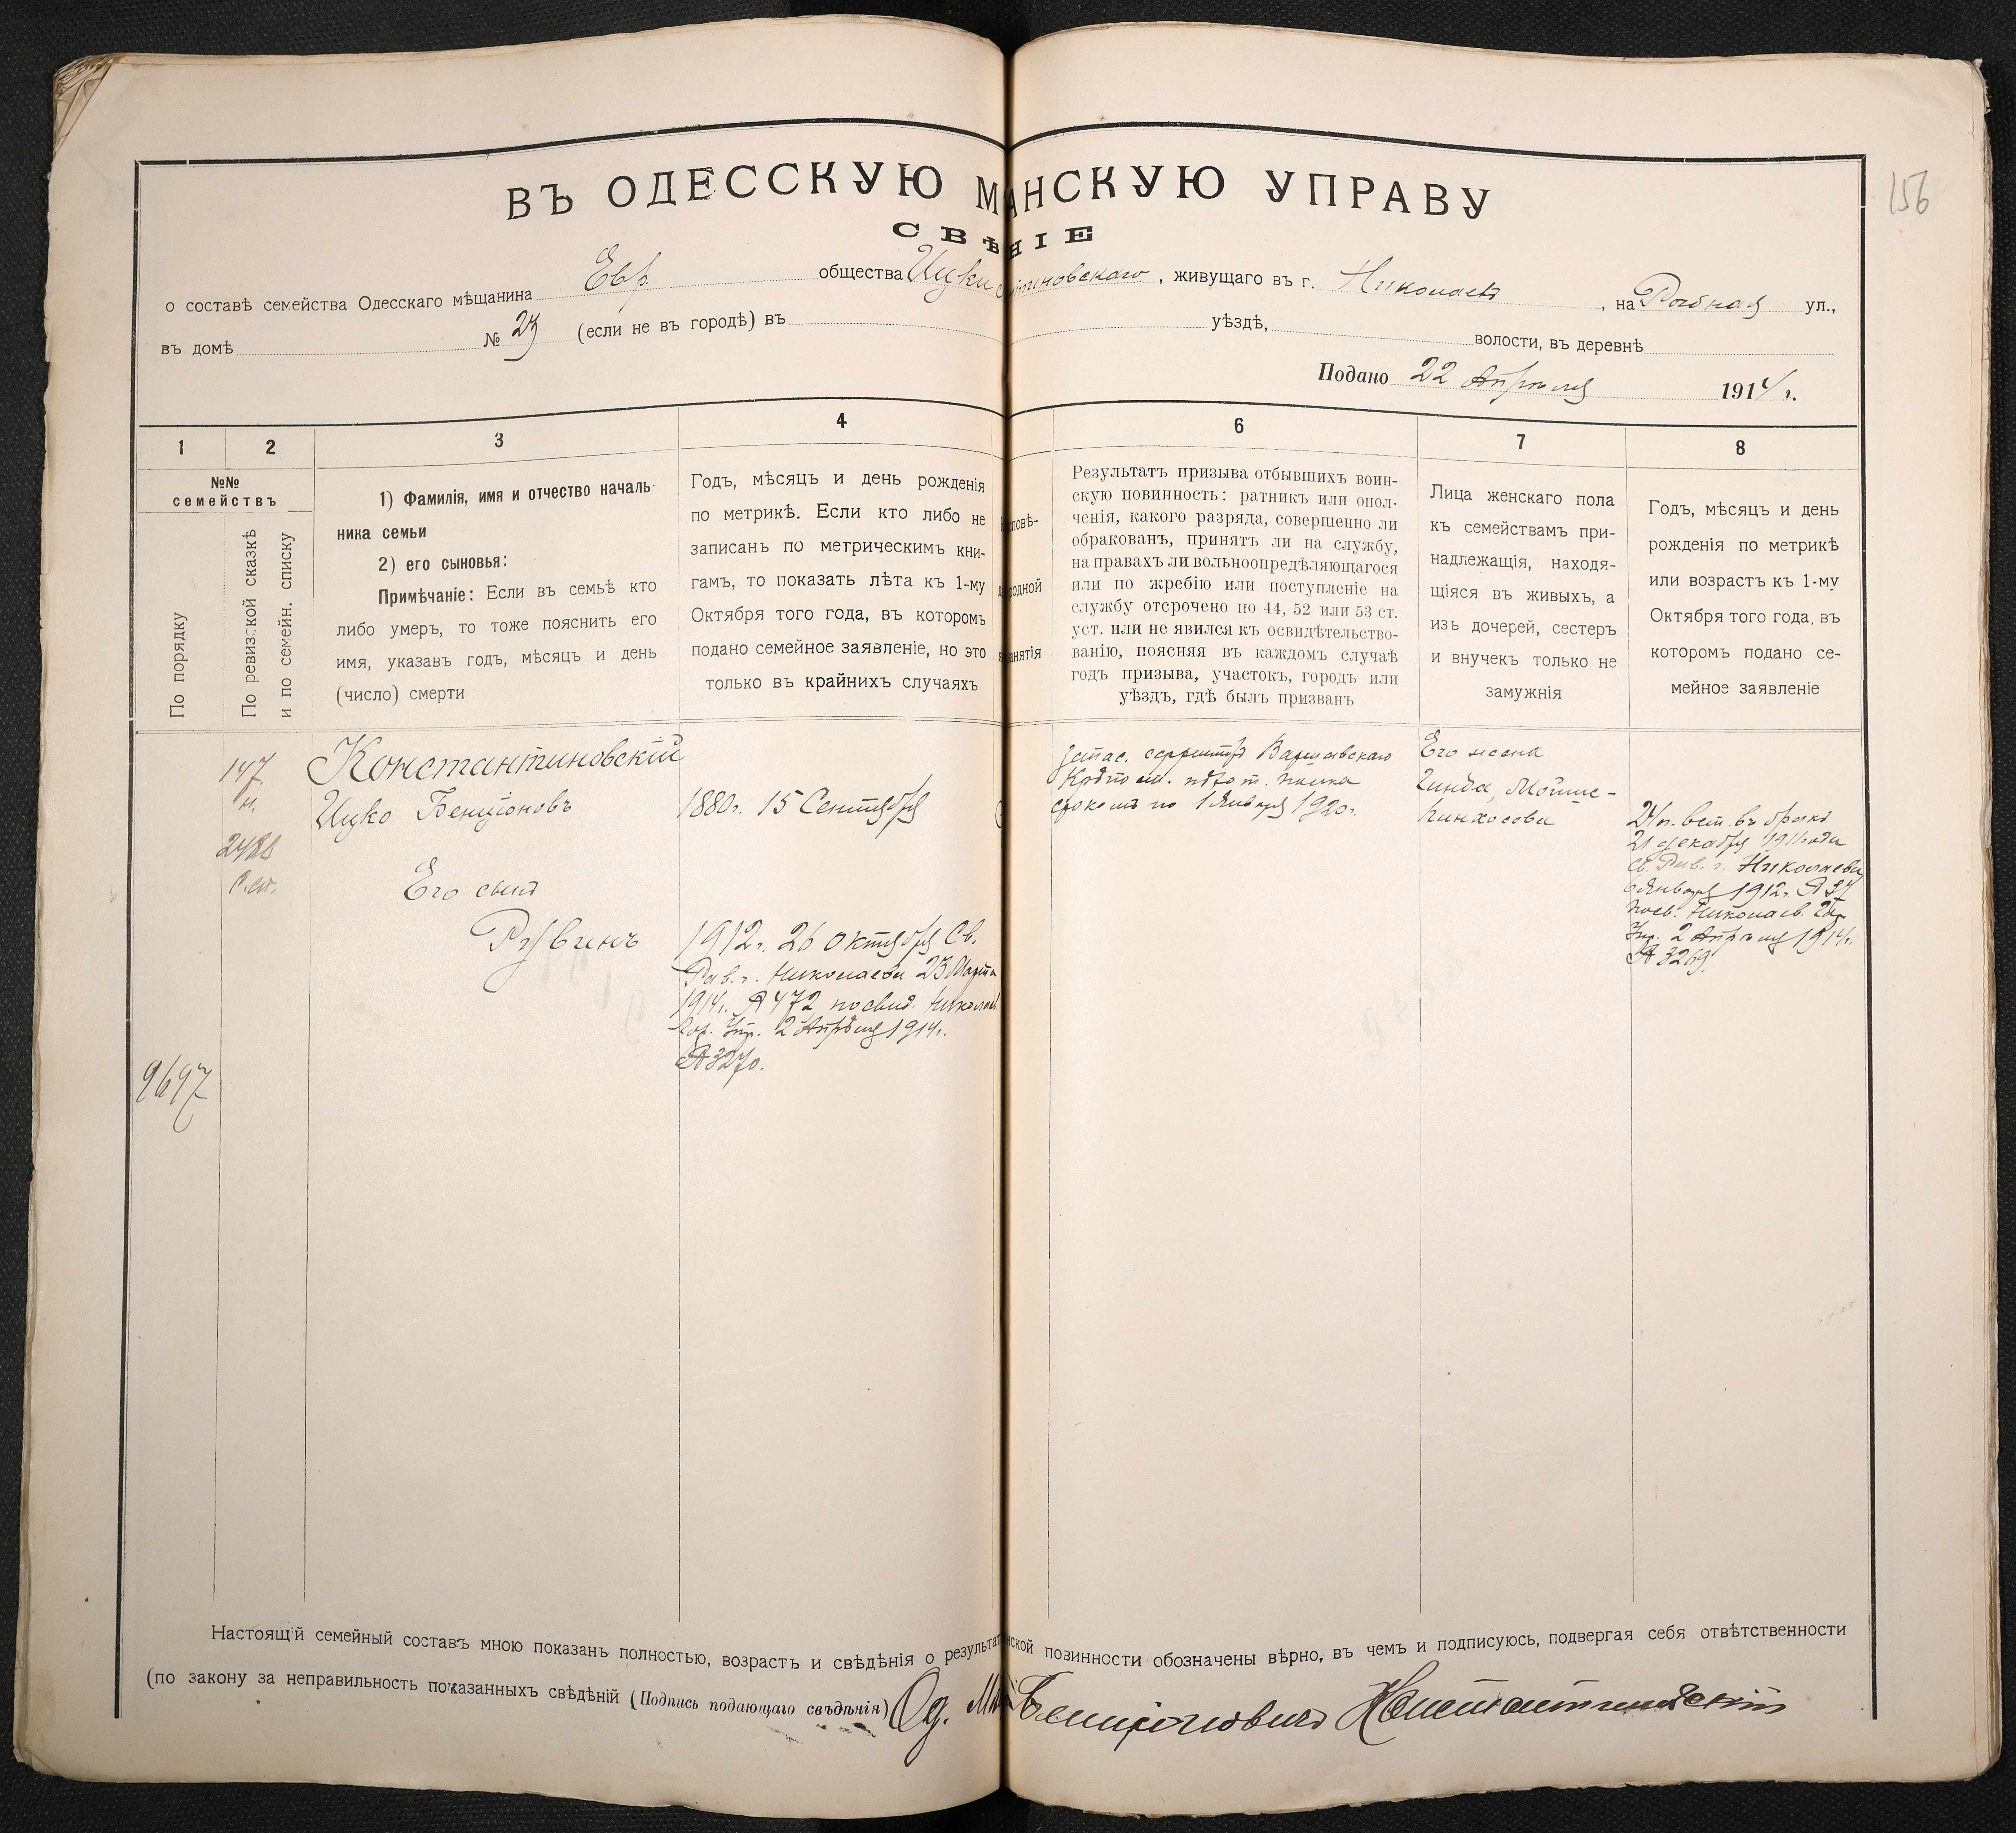 156
ВЪ ОДЕССКУЮ М АНСКУЮ УПРАВУ
СВѢ НІЕ
о составѣ семейства Одесскаго мѣщанина Евр. общества Ицки тиновскаго, живущаго въ г. Николаевѣ, на Рыбная ул.,
въ домѣ № 23 (если не въ городѣ) въ уѣздѣ, волости, въ деревнѣ
Подано 22 Апрѣля 1914 г.
1 2 3 4 6 7 8
№№
семействъ
По порядку
По ревизской сказкѣ
и по семейн. списку
1) Фамилія, имя и отчество началь-
ника семьи
2) его сыновья:
Примѣчаніе: Если въ семьѣ кто
либо умеръ, то тоже пояснить его
имя, указавъ годъ, мѣсяцъ и день
(число) смерти
Годъ, мѣсяцъ и день рожденія
по метрикѣ. Если кто либо не
записанъ по метрическимъ кни-
гамъ, то показать лѣта къ 1-му
Октября того года, въ которомъ
подано семейное заявленіе, но это
только въ крайнихъ случаяхъ
повѣ-
родной
анятія
Результатъ призыва отбывшихъ воин-
скую повинность: ратникъ или опол-
ченія, какого разряда, совершенно ли
обракованъ, принятъ ли на службу,
на правахъ ли вольноопредѣляющагося
или по жребію или поступленіе на
службу отсрочено по 44, 52 или 53 ст.
уст. или не явился къ освидѣтельство-
ванію, поясняя въ каждомъ случаѣ
годъ призыва, участокъ, городъ или
уѣздъ, гдѣ былъ призванъ
Лица женскаго пола
къ семействамъ при-
надлежащія, находя-
щіяся въ живыхъ, а
изъ дочерей, сестеръ
и внучекъ только не
замужнія
Годъ, мѣсяцъ и день
рожденія по метрикѣ
или возрастъ къ 1-му
Октября того года, въ
которомъ подано се-
мейное заявленіе
147
н.
Константиновскій
Ицко Бенціоновъ
1880 г. 15 Сентября
Запас. Варшавскаго
Крѣпост. пѣхот. полка
срокомъ по 1 Января 1920 г.
Его жена
Гинда, Мойше-
Пинхосова
24 л. вст. въ бракъ
21 декабря 1911 года
Св. Рав. г. Николаева
6 Января 1912 г. № 34
посв. Николаев. Гор.
Упр. 2 Апрѣля 1914 г.
№ 3269.
Его сынъ
Рувинъ
1912 г. 26 октября Св.
Рав. г. Николаева 23 Марта
1914 г. № 472 посвид. Николаев
Гор. Упр. 2 Апрѣля 1914 г.
№ 3270.
9697
Настоящій семейный составъ мною показанъ полностью, возрастъ и свѣдѣнія о результат нской повинности обозначены вѣрно, въ чемъ и подписуюсь, подвергая себя отвѣтственности
(по закону за неправильность показанныхъ свѣдѣній (Подпись подающаго свѣдѣнія) Од. Бенціоновичъ Константиновскій